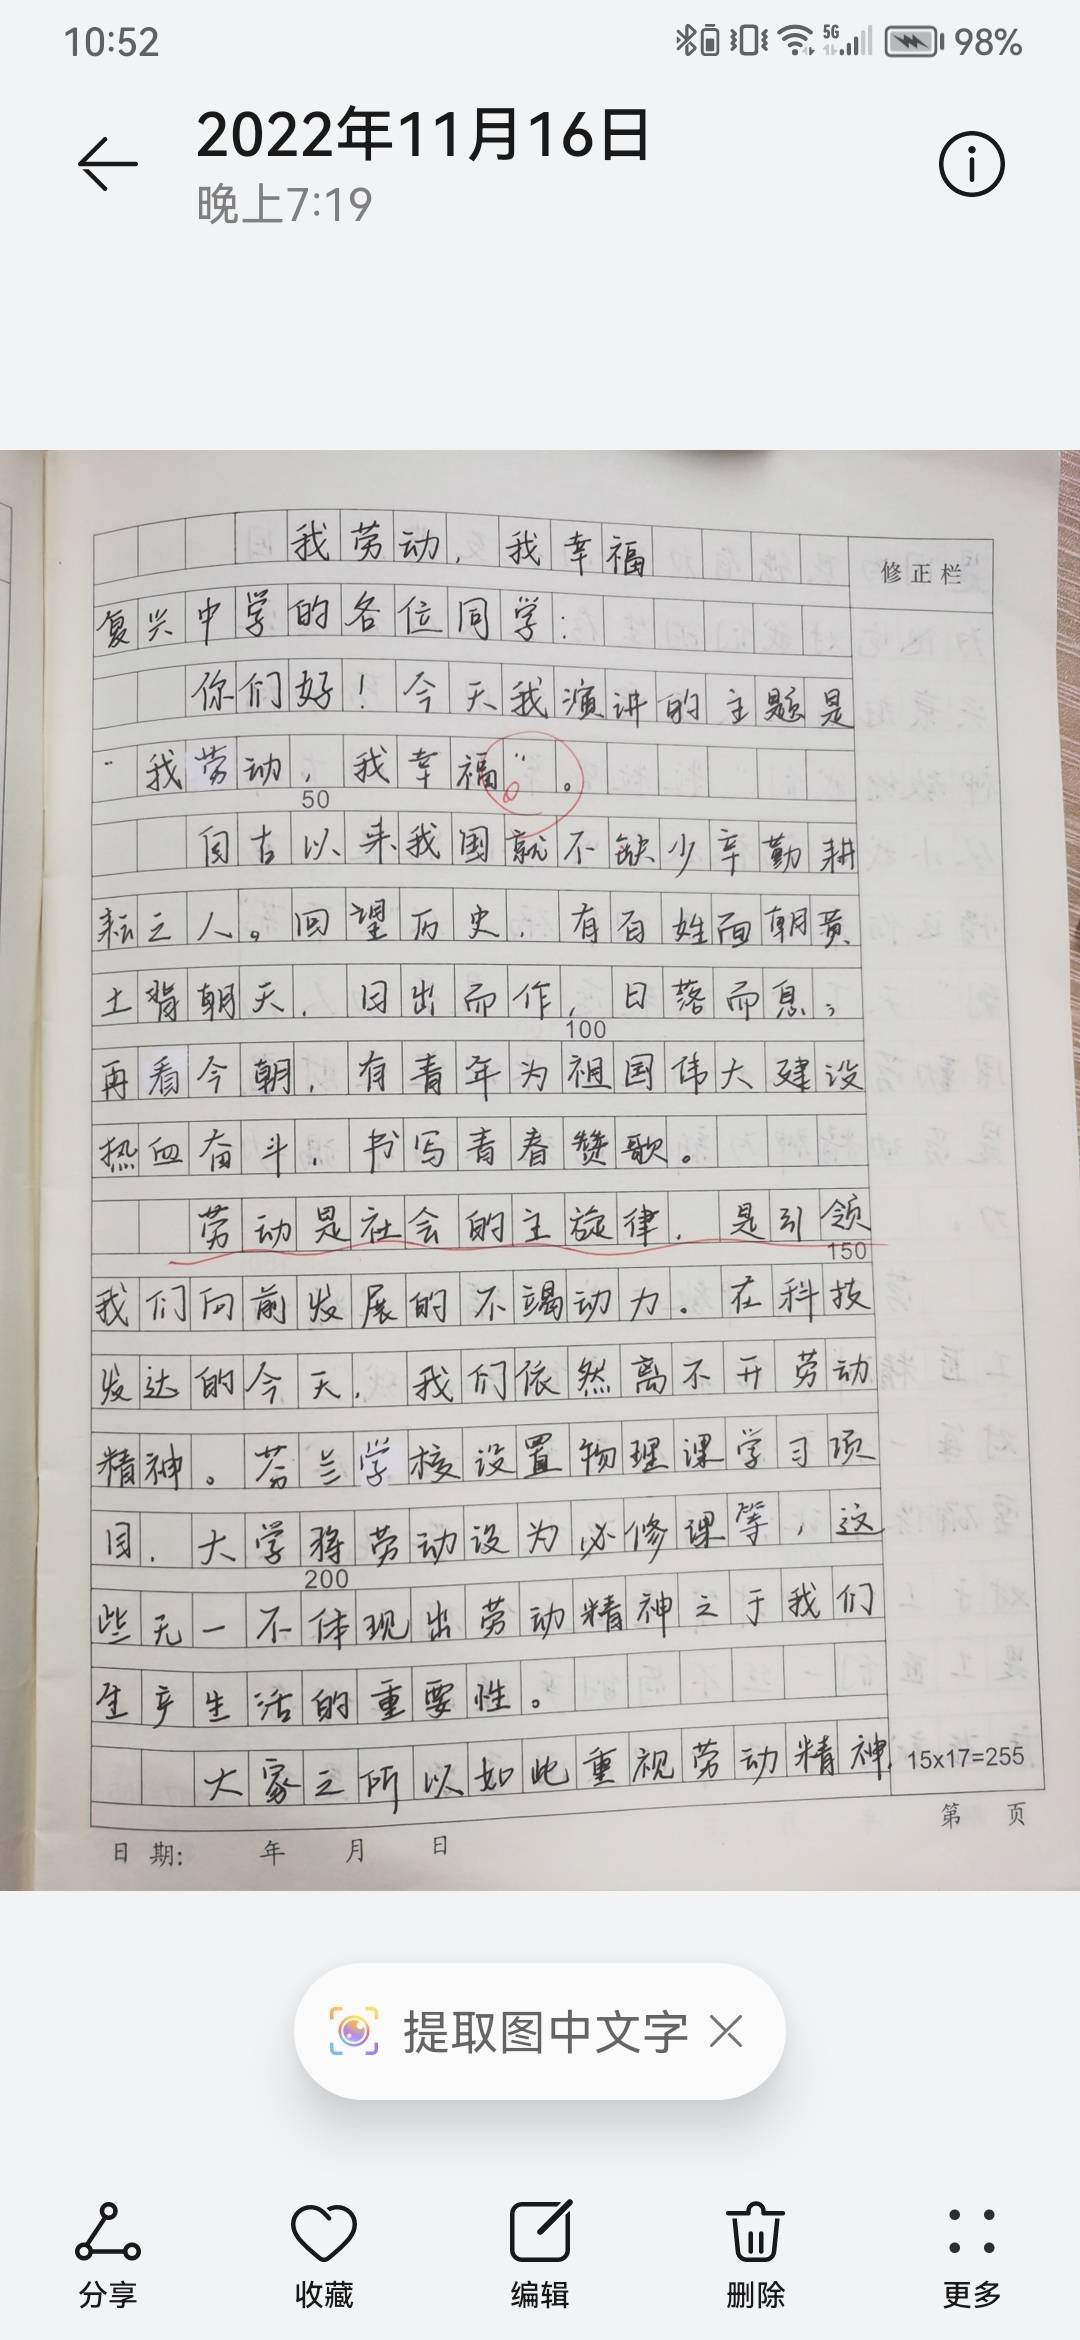 10:52
5G
98%
2022年11月16日
晚上7:19
我劳动，我幸福
修正栏
复兴中学的各位同学：
你们好！今天我演讲的主题是
“我劳动，我幸福”。
50
自古以来我国就不缺少辛勤耕
耘之人。回望历史，有百姓面朝黄
土背朝天，日出而作，日落而息；
100
再看今朝，有青年为祖国伟大建设
热血奋斗，书写青春赞歌。
劳动是社会的主旋律，是引领
150
我们向前发展的不竭动力。在科技
发达的今天，我们依然离不开劳动
精神。芬兰学校设置物理课学习项
目，大学将劳动设为必修课等，这
200
些无一不体现出劳动精神之于我们
生产生活的重要性。
大家之所以如此重视劳动精神，
15x17=255
第 页
日 期： 年 月 日
提取图中文字
分享
收藏
编辑
删除
更多